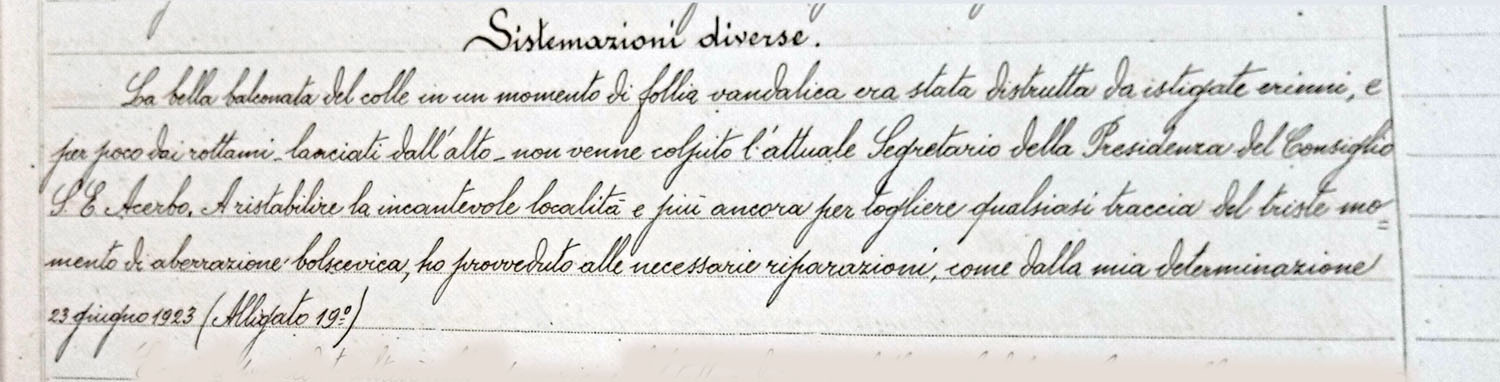 Sistemazioni diverse.
La bella balconata del colle in un momento di follia vandalica era stata distrutta da istigate erinni, e
per poco dai rottami - lanciati dall'alto - non venne colpito l'attuale Segretario della Presidenza del Consiglio
S. E. Acerbo. A ristabilire la incantevole località e più ancora per togliere qualsiasi traccia del triste mo=
mento di aberrazione bolscevica, ho provveduto alle necessarie riparazioni, come dalla mia determinazione
23 giugno 1923 (Alligato 19º)